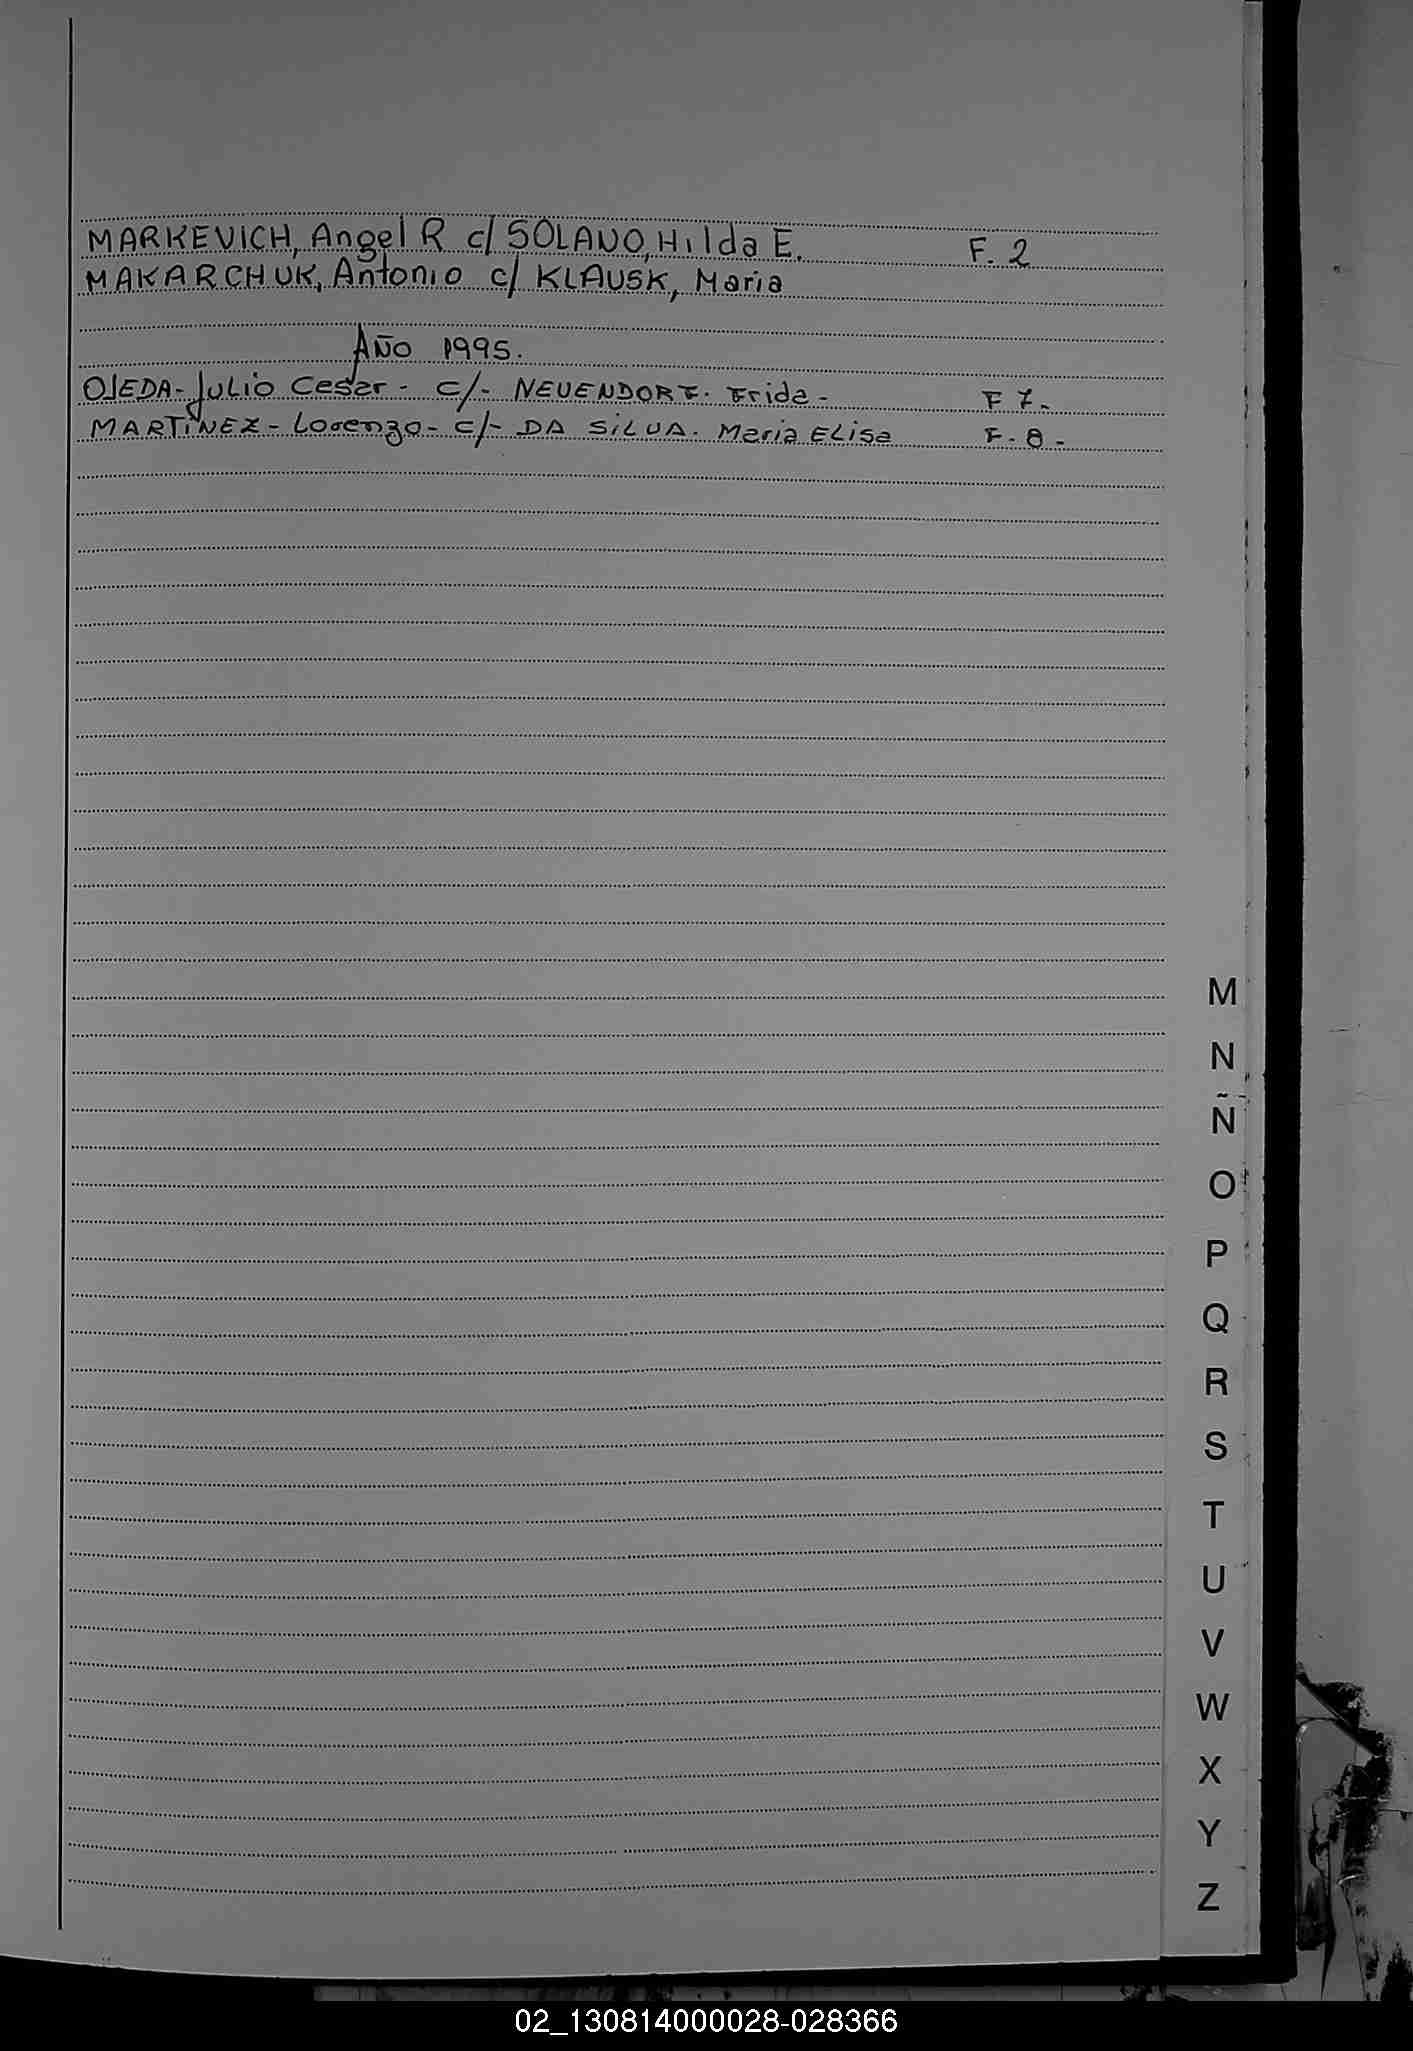 MARKEVICH, Angel R c/ SOLANO, Hilda E. F. 2
MAKARCHUK, Antonio c/ KLAUSK, Maria
AÑO 1995.
OJEDA- Julio Cesar - c/- NEUENDORF. Frida - F 7.-
MARTiNEZ - Lorenzo - c/- DA SiLVA. Maria ELisa F. 8 -
M
N
Ñ
O
P
Q
R
S
T
U
V
W
X
Y
Z
02_130814000028-028366